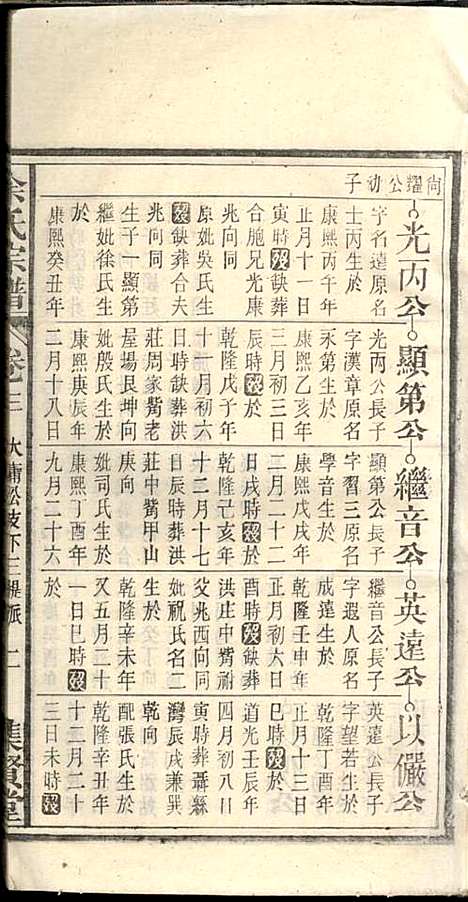 尚耀公幼子
光丙公
字名遠原名
士丙生於
康熙丙午年
正月十一日
寅時殁缺葬
合胞兄光康
兆向同
原妣吳氏生
殁缺葬合夫
兆向同
生子一顯第
繼妣徐氏生
於
康熙癸丑年
顯第公
光丙公長子
字漢章原名
禾第生於
康熙乙亥年
三月初三日
辰時殁於
乾隆戊子年
十一月初六
日時缺葬洪
莊周家觜老
屋場艮坤向
妣殷氏生於
康熙庚辰年
二月十八日
繼音公
顯第公長子
字習三原名
學音生於
康熙年
二月二十二
日戌時殁於
乾隆己亥年
十二月十七
日辰時葬洪
莊中觜甲山
庚向
妣司氏生於
康熙丁酉年
九月二十六
英遠公
繼音公長子
字遐人原名
成遠生於
乾隆壬申年
正月初六日
酉時殁缺葬
洪庄中觜祔
父兆西向同
妣祝氏名二
生於
乾隆辛未年
又五月二十
一日巳時殁
於
以儼公
英遠公長子
字望若生於
乾隆丁酉年
正月十三日
巳時殁於
道光壬辰年
四月初八日
寅時葬聶縣
灣辰戌兼巽
乾向
配張氏生於
乾隆辛丑年
十二月二十
三日未時殁
余氏宗譜
卷之三
支下三禔派
二
集賢堂